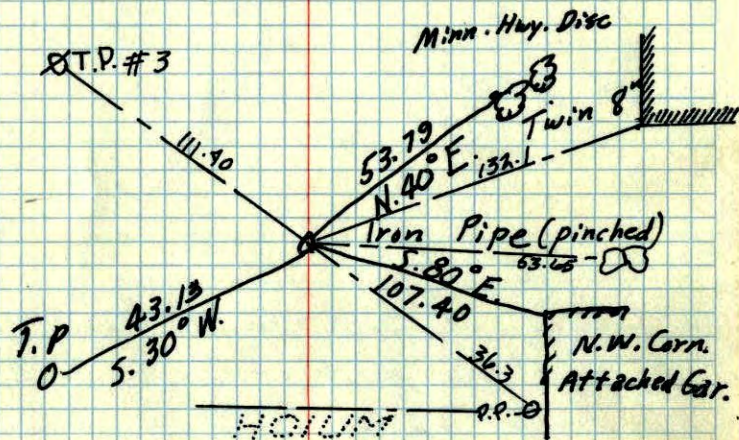 Minn. Hwy. Disc
T.P. #3
111.40
53.79
N. 40° E.
Twin 8"
132.1
Iron Pipe (pinched)
63.65
S. 80° E.
107.40
43.13
S. 30° W.
T.P
36.3
N.W. Corn.
Attached Gar.
P.P.
HOIUM